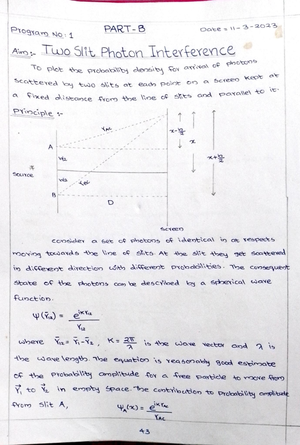 Program No: 1 PART-B Date = 11-3-2023
Aim:- Two Slit Photon Interference
To plot the probability density for arrival of photons
scattered by two slits at each point on a screen kept at
a fixed distance from the line of slits and parallel to it.
Principle :-
A
B
Source
D
x
Screen
Consider a set of photons of identical in all respects
moving towards the line of slits. At the slit they get scattered
in different direction with different probabilities. The consequent
state of the photons can be described by a spherical wave
function.
ψ(r̄₁₂) = e^{ikr₁₂} / r₁₂
where r̄₁₂ = r̄₁ - r̄₂, K = 2π/λ is the wave vector and λ is
the wavelength. The equation is reasonably good estimate
of the probability amplitude for a free particle to move from
r̄₁ to r̄₂ in empty space. The contribution to probability amplitude
from slit A,
43